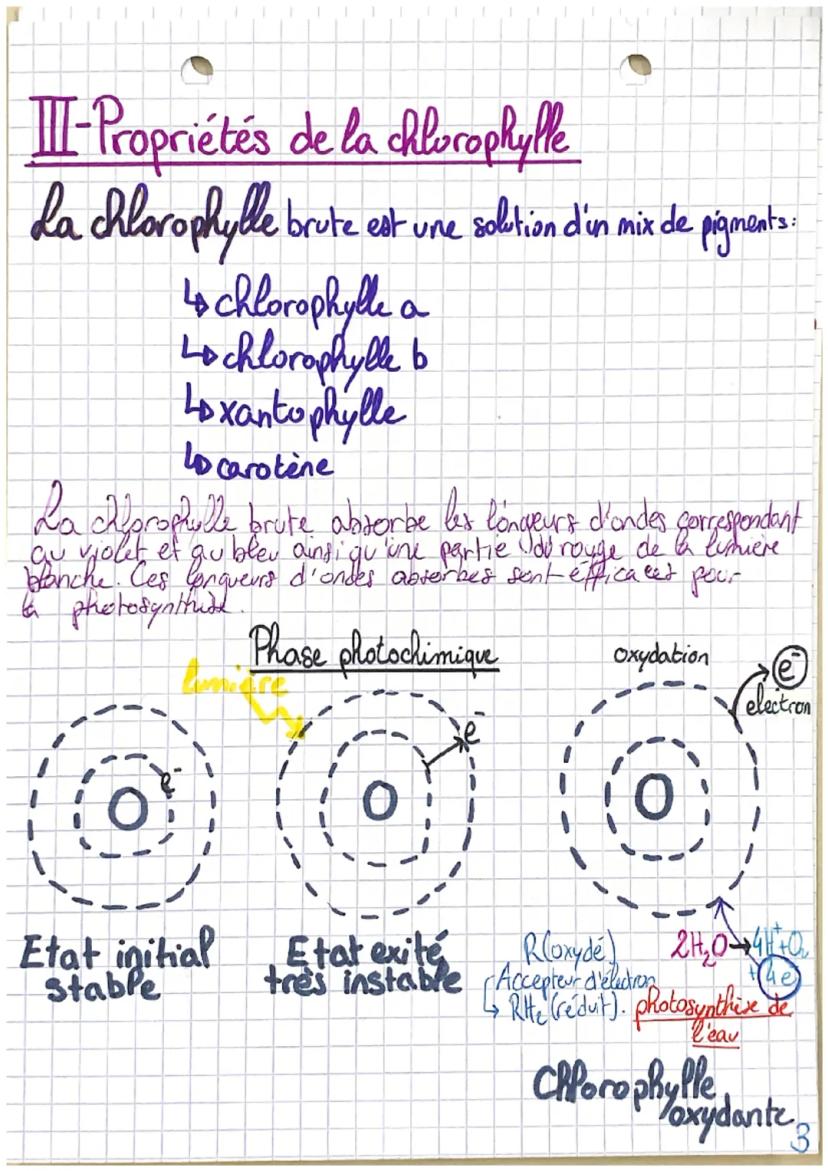 III-Propriétés de la chlorophylle
La chlorophylle brute est une solution d'un mix de pigments:
↳ chlorophylle a
↳ chlorophylle b
↳ xantophylle
↳ carotène
La chlorophylle brute absorbe les longeurs d'ondes correspondant
au violet et au bleu ainsi qu'une partie du rouge de la lumière
blanche. Ces longueurs d'ondes absorbés sont éfficaces pour
la photosynthèse.
Phase photochimique
oxydation
lumière
e⁻
e⁻
e⁻
électron
Etat initial
stable
Etat exité
très instable
R(oxydé)
Accepteur d'électron
↳ RH₂ (réduit).
2H₂O → 4H⁺+O₂
+ 4e⁻
photosynthèse de
l'eau
Chlorophylle
oxydante
3